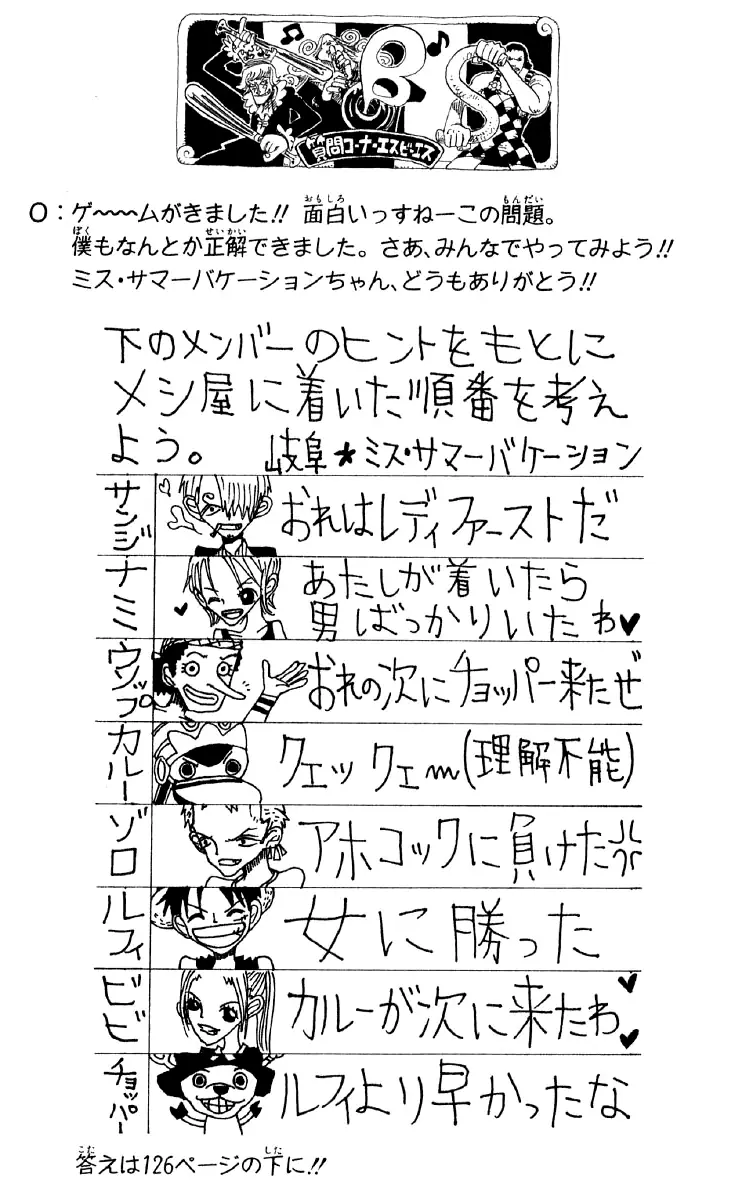 BS
質問コーナー・エスビーエス
O：ゲ〜〜〜ムがきました!! 面白いっすねーこの問題。
僕もなんとか正解できました。さあ、みんなでやってみよう!!
ミス・サマーバケーションちゃん、どうもありがとう!!
下のメンバーのヒントをもとに
メシ屋に着いた順番を考え
よう。 岐阜★ミス・サマーバケーション
サンジ おれはレディファーストだ
ナミ あたしが着いたら
男ばっかりいたわ♥
ウソップ おれの次にチョッパー来たぜ
カルー クエックエ〜(理解不能)
ゾロ アホコックに負けた
ルフィ 女に勝った
ビビ カルーが次に来たわ♥♥
チョッパー ルフィより早かったな
答えは126ページの下に!!